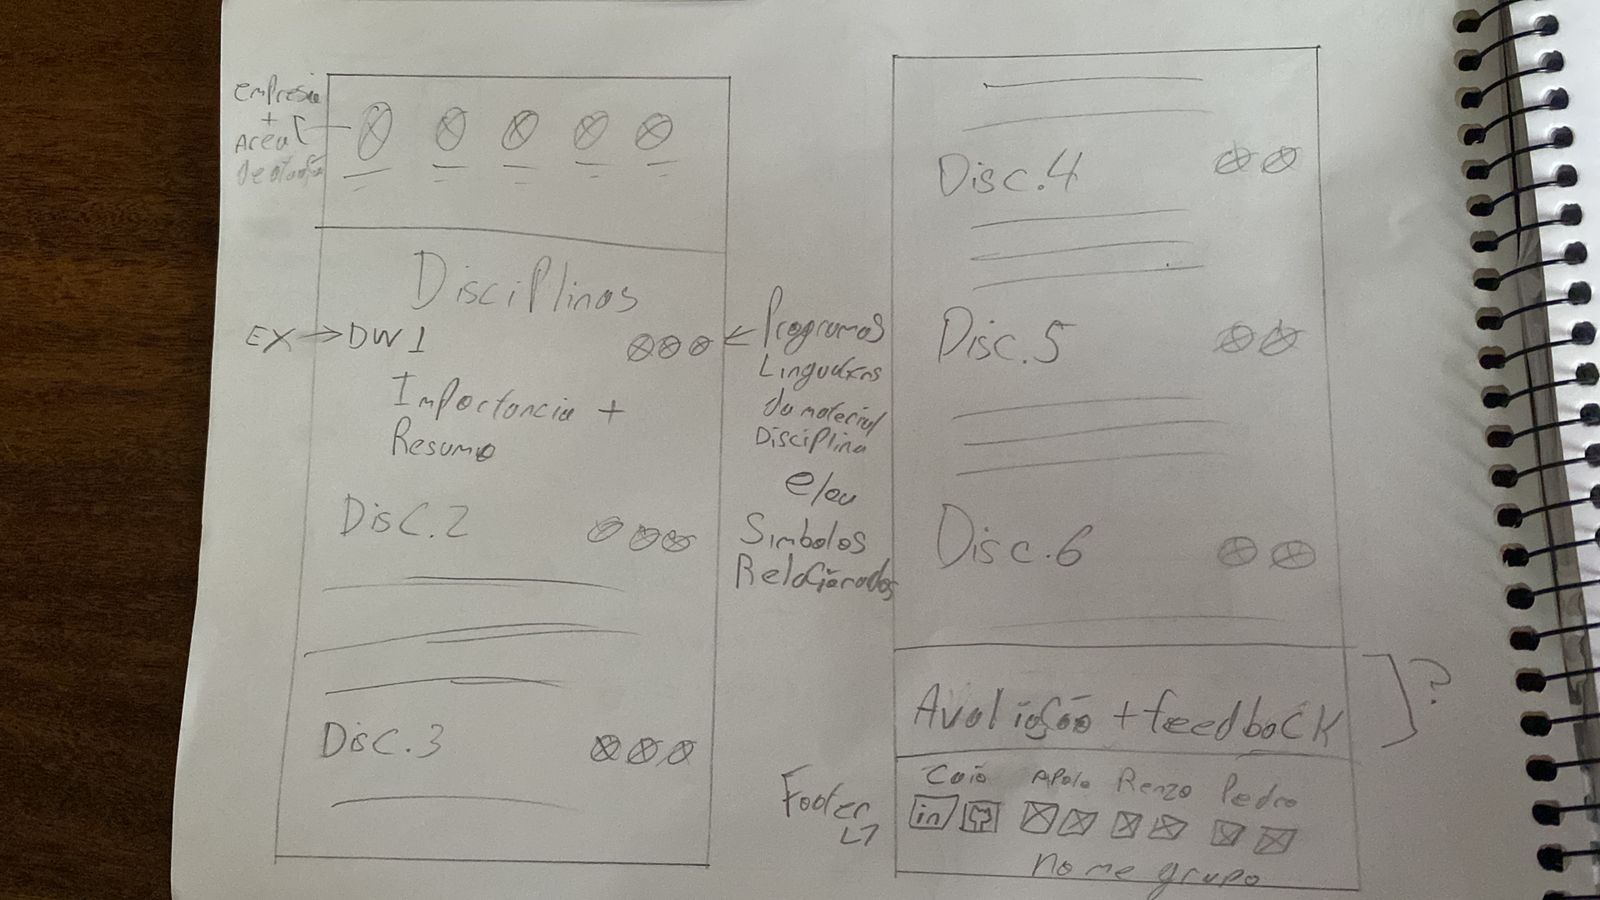 empresa
+
Area
Disciplinas
EX → DW1
Importancia +
Resumo
Disc.2
Disc.3
Programas
Linguagens
da material
Disciplina
e/ou
Simbolos
Relacionados
Disc.4
Disc.5
Disc.6
Avaliação + feedback
?
Footer
Caio Apolo Renzo Pedro
in
nome grupo